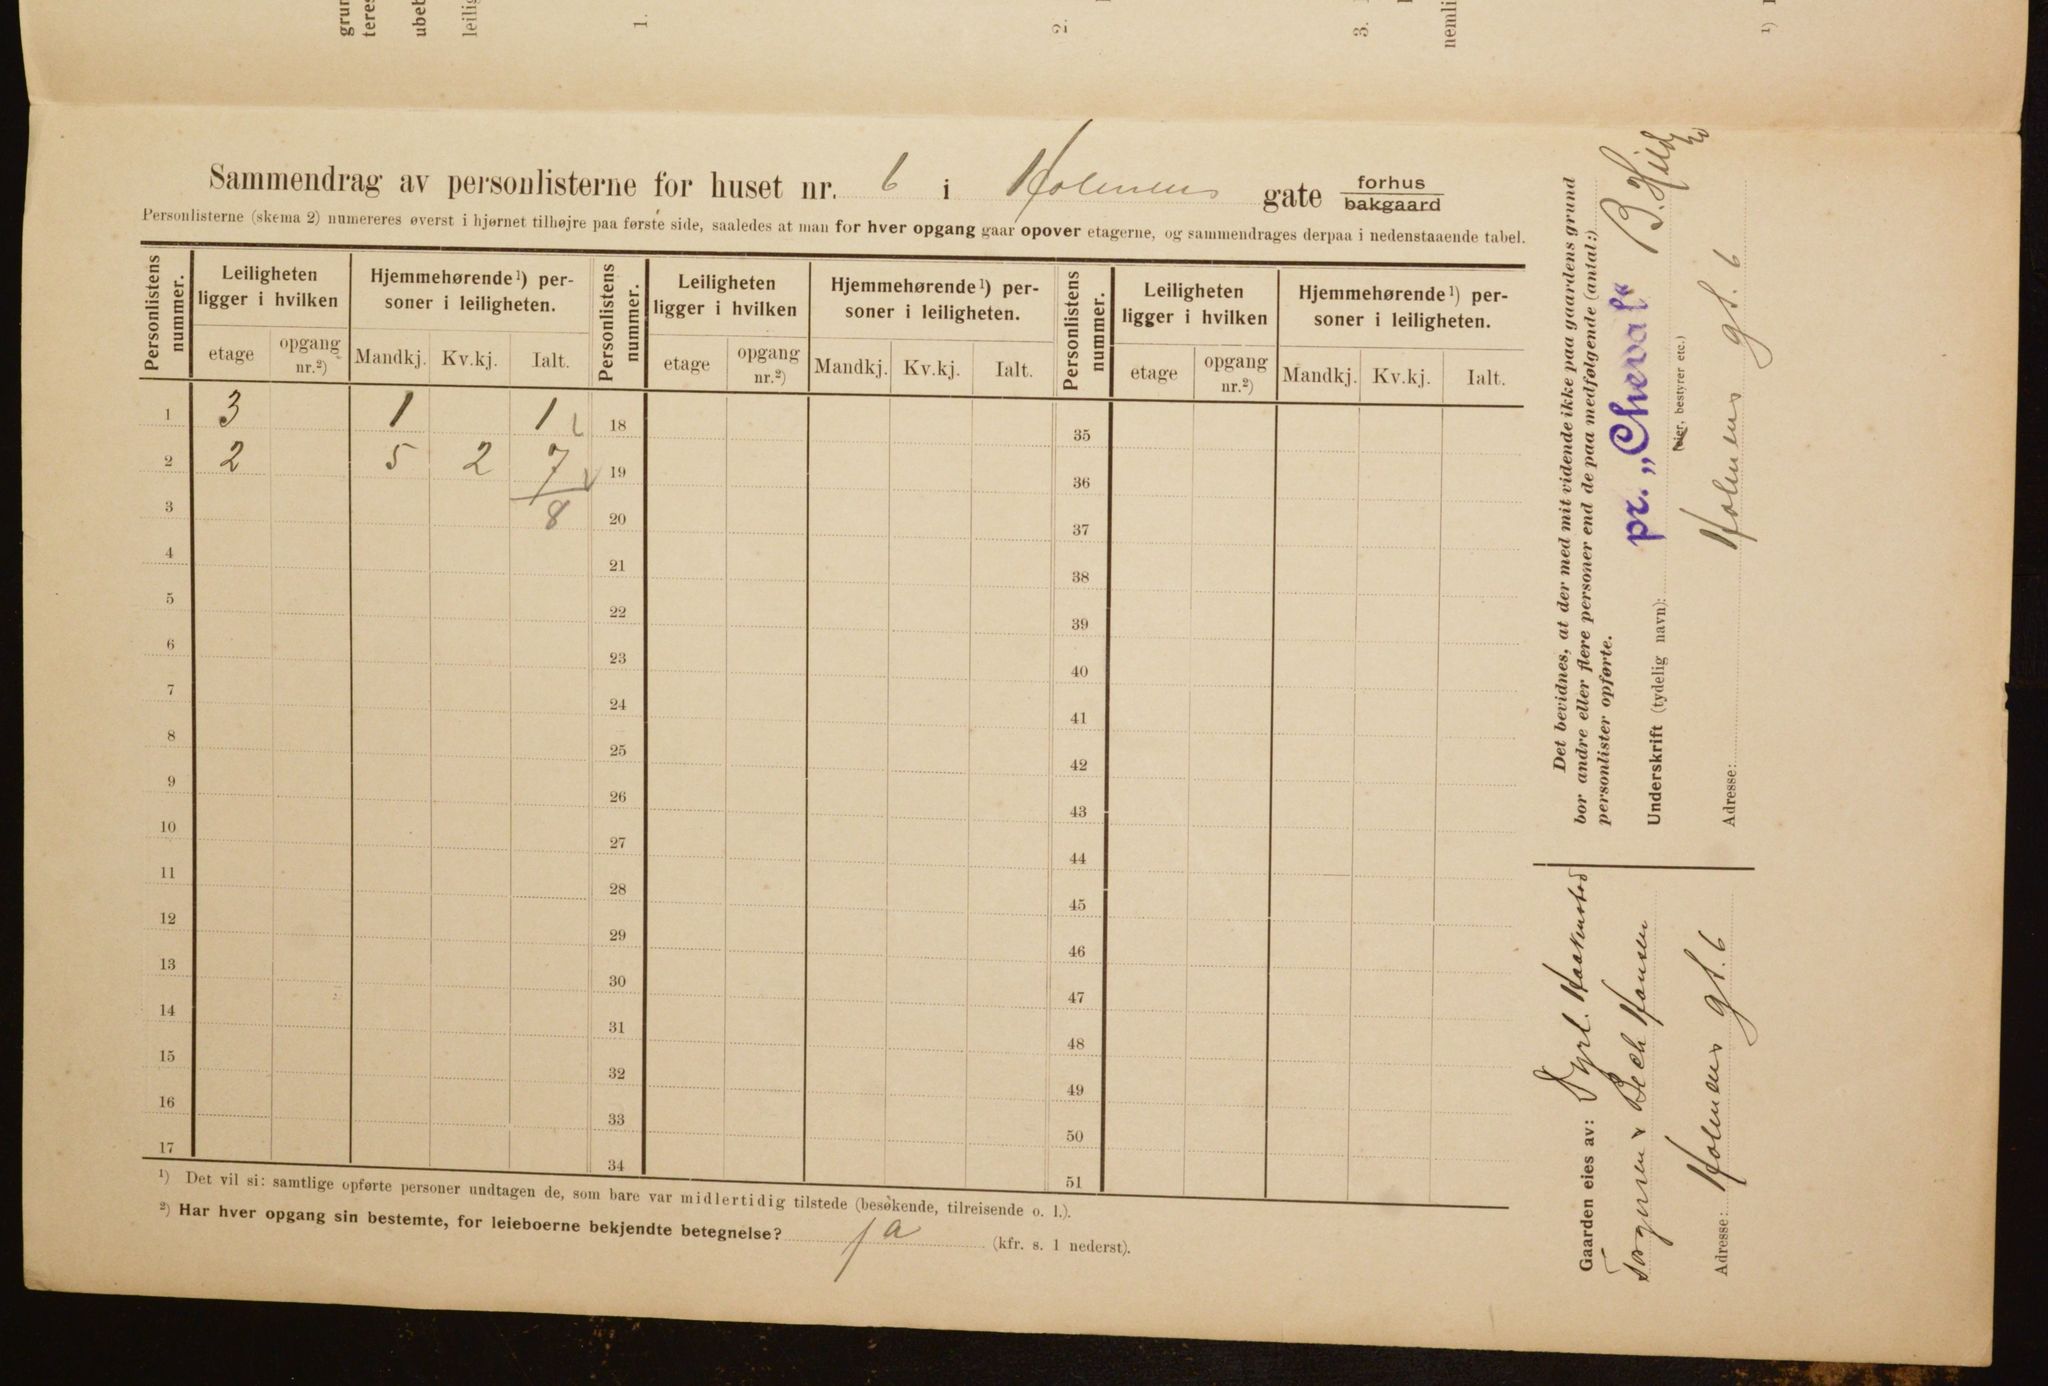 grun
teres
ubeb
leilig
1.
2.
3.
nemli
1)
Sammendrag av personlisterne for huset nr. 6 i Holmens gate forhus bakgaard
Personlisterne (skema 2) numereres øverst i hjørnet tilhøjre paa første side, saaledes at man for hver opgang gaar opover etagerne, og sammendrages derpaa i nedenstaaende tabel.
Personlistens nummer. Leiligheten ligger i hvilken Hjemmehørende¹) personer i leiligheten. Personlistens nummer. Leiligheten ligger i hvilken Hjemmehørende¹) personer i leiligheten. Personlistens nummer. Leiligheten ligger i hvilken Hjemmehørende¹) personer i leiligheten.
etage opgang nr.²) Mandkj. Kv.kj. Ialt. etage opgang nr.²) Mandkj. Kv.kj. Ialt. etage opgang nr.²) Mandkj. Kv.kj. Ialt.
1 3 1 1 18 35
2 2 5 2 7 19 36
3 8 20 37
4 21 38
5 22 39
6 23 40
7 24 41
8 25 42
9 26 43
10 27 44
11 28 45
12 29 46
13 30 47
14 31 48
15 32 49
16 33 50
17 34 51
¹) Det vil si: samtlige opførte personer undtagen de, som bare var midlertidig tilstede (besøkende, tilreisende o. l.).
²) Har hver opgang sin bestemte, for leieboerne bekjendte betegnelse? ja (kfr. s. 1 nederst).
Det bevidnes, at der med mit vidende ikke paa gaardens grund
bor andre eller flere personer end de paa medfølgende (antal:)
personlister opførte.
pr. „Cheval“ B.
Underskrift (tydelig navn):
(eier, bestyrer etc.)
Adresse: Holmens gt. 6
Gaarden eies av: Dyrl. Haakensstad
& Bech Hansen
Adresse: Holmens gt. 6